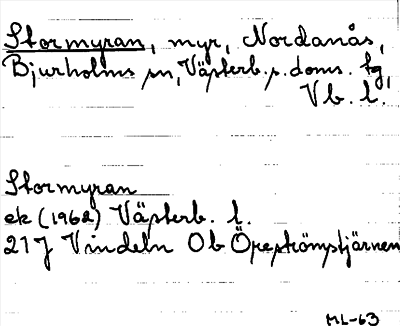 Stormyran, myr, Nordanås,
Bjurholms sn, Västerb. s. doms. tg,
Vb. l.
Stormyran
ek (1962) Västerb. l.
21J Vindeln Ob Örestömstjärnen
ML-63